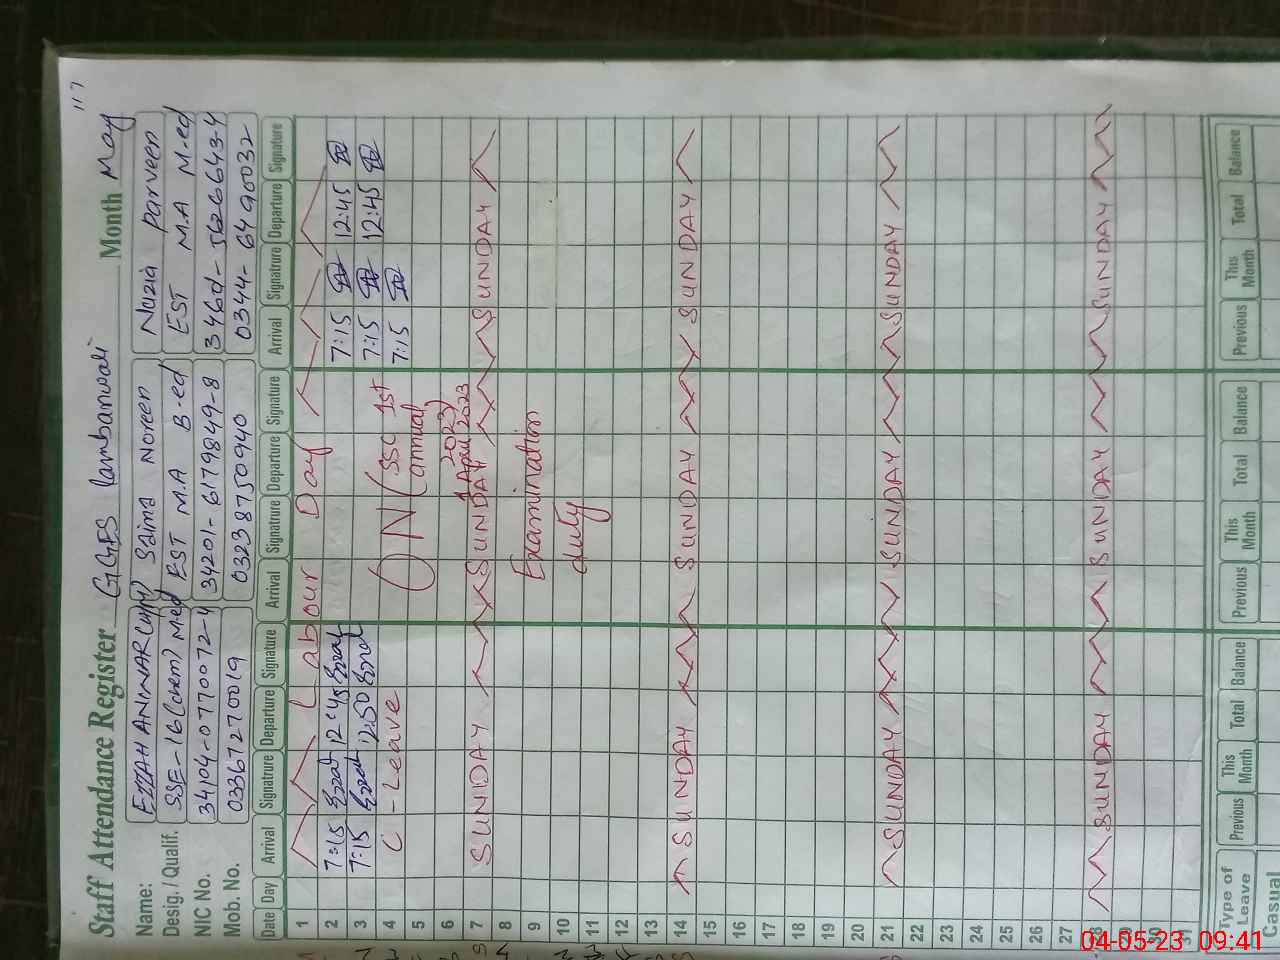 117
Staff Attendance Register GGES lambanwali Month May
Name: EZZAH ANWAR Saima Noreen Nazia Parveen
Desig. / Qualif. SSE-16 (chem) M.ed EST M.A B-ed EST M.A M-ed
NIC No. 34104-0770072-4 34201-6179849-8
Mob. No. 03367270019 03238750940 0344-6490032
Date Day Arrival Signatrure Departure Signature Arrival Signatrure Departure Signature Arrival Signatrure Departure Signature
1 Labour Day
2 7:15 12:45 7:15 12:45
3 7:15 12:50 7:15 12:45
4 C-Leave ON (SSC 1st 7:15
5 annual
6 2023)
1 April 2023
7 SUNDAY SUNDAY SUNDAY
8
9 Examination
10
11 duty
12
13
14 SUNDAY SUNDAY SUNDAY
15
16
17
18
19
20
21 SUNDAY SUNDAY SUNDAY
22
23
24
25
26
27
28 SUNDAY SUNDAY SUNDAY
29
30
31
Type of Leave Previous This Month Total Balance Previous This Month Total Balance Previous This Month Total Balance
Casual
04-05-23 09:41